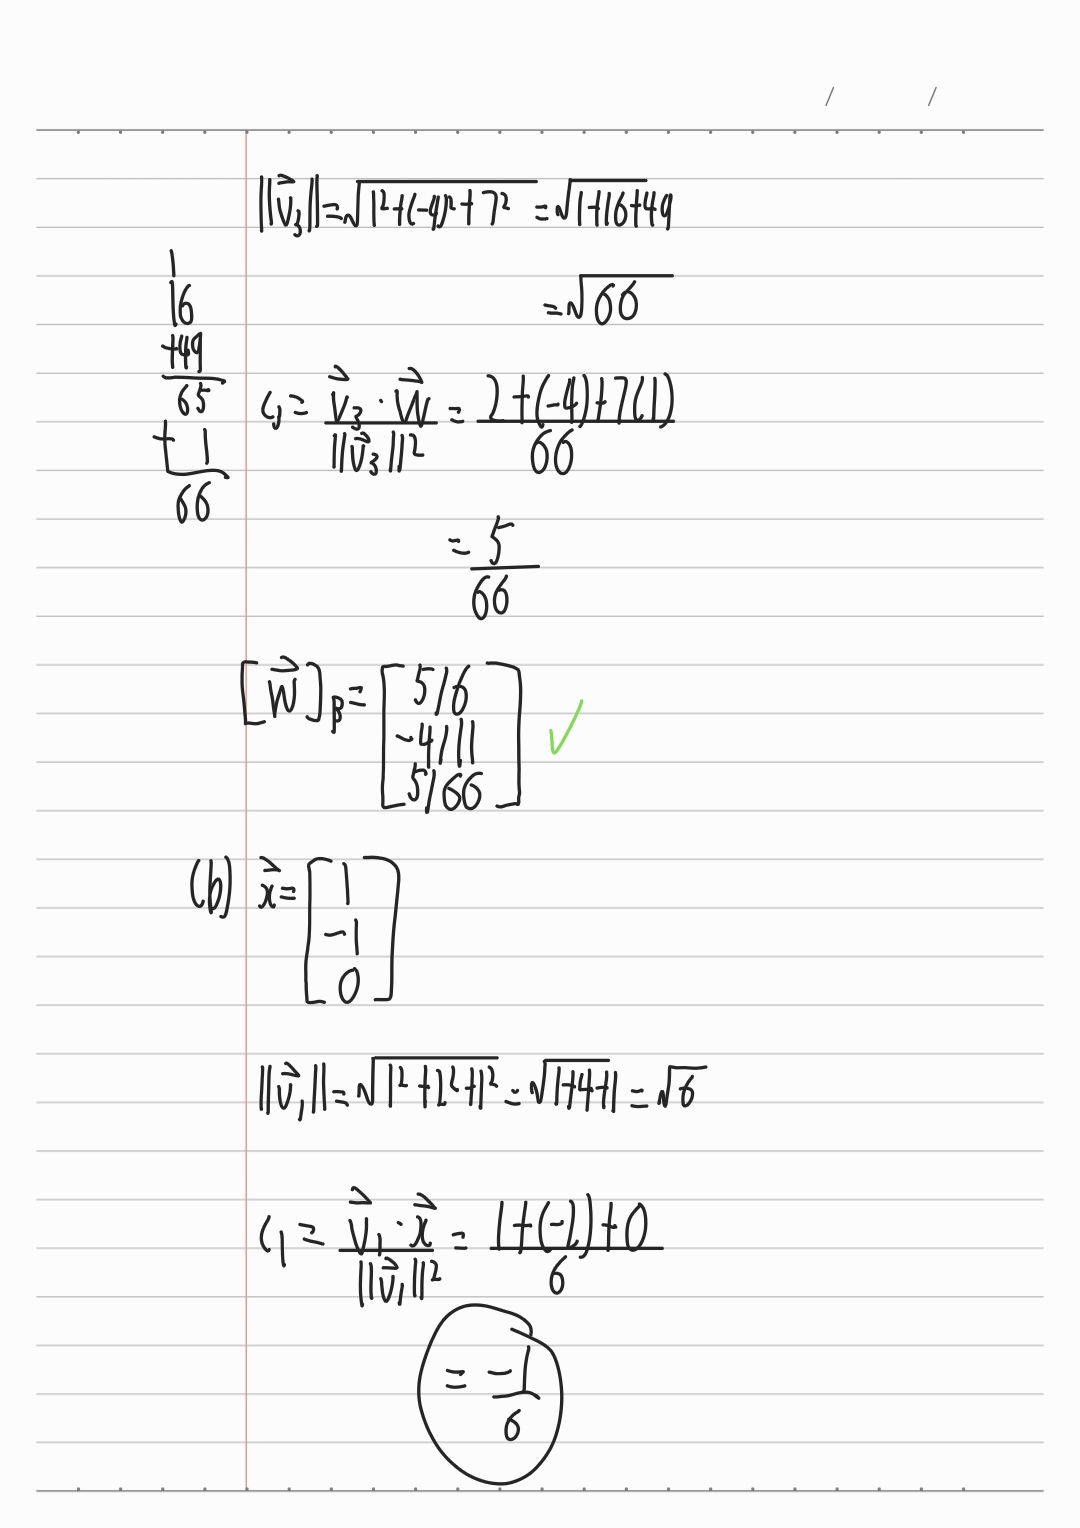 / /
||v⃗₃|| = √(1²+(-4)²+7²) = √(1+16+49)
= √66
1
16
+49
65
+ 1
66
c₃ = (v⃗₃ · w⃗)/||v⃗₃||² = (2+(-4)+7(1))/66
= 5/66
[w⃗]β = [5/6
-4/11
5/66] ✓
(b) x⃗ = [1
-1
0]
||v⃗₁|| = √(1²+2²+1²) = √(1+4+1) = √6
c₁ = (v⃗₁ · x⃗)/||v⃗₁||² = (1+(-2)+0)/6
= -1/6